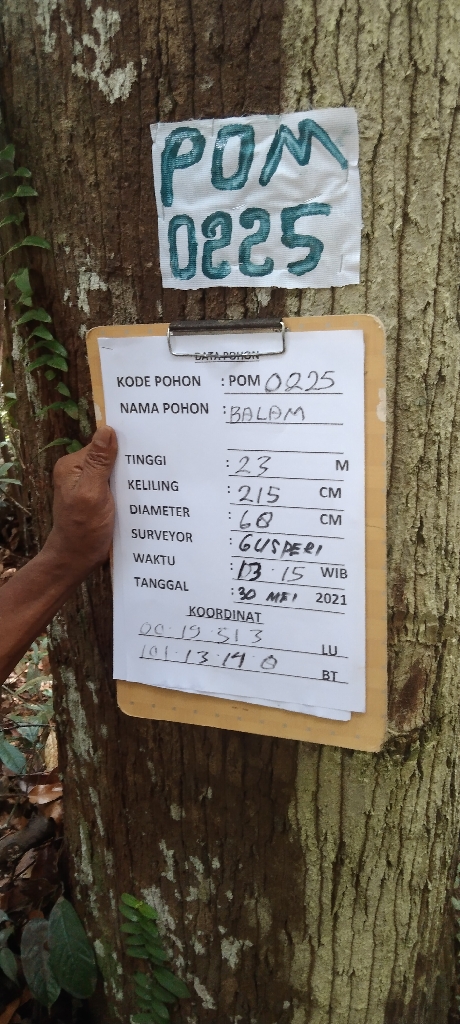 POM
0225
DATA POHON
KODE POHON : POM 0225
NAMA POHON : BALAM
TINGGI : 23 M
KELILING : 215 CM
DIAMETER : 68 CM
SURVEYOR : GUSPERI
WAKTU : 13 : 15 WIB
TANGGAL : 30 MEI 2021
KOORDINAT
00 . 19 . 51 3 LU
101 . 13 . 14 . 0 BT